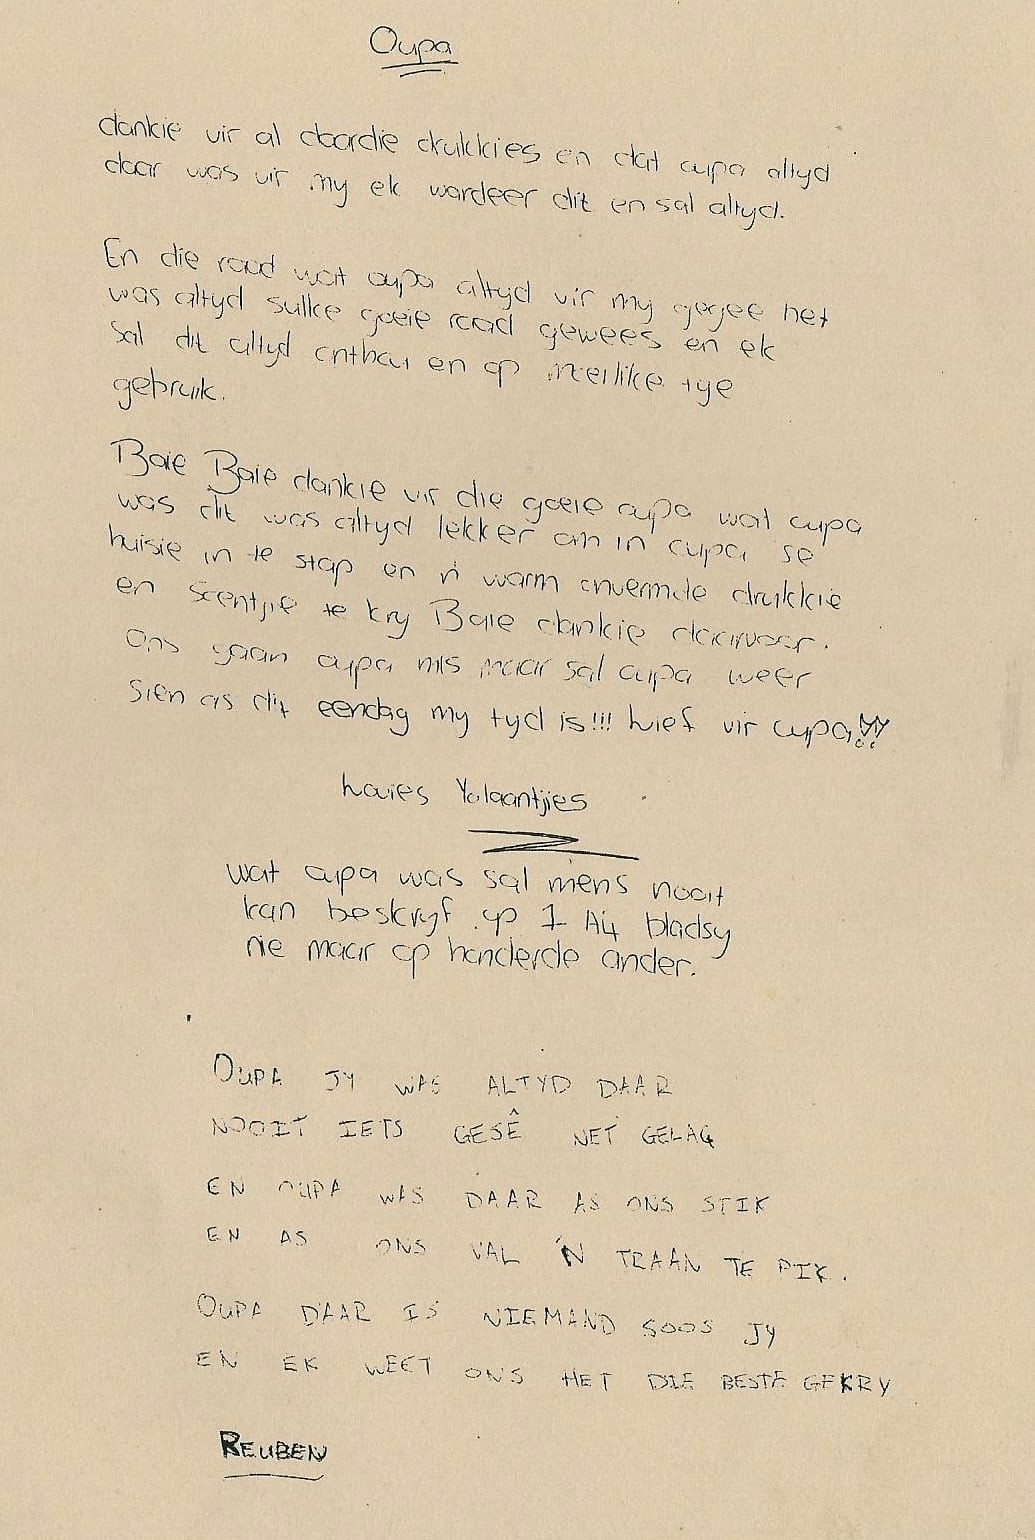 Oupa
dankie vir al daardie drukkies en dat oupa altyd
daar was vir my ek wardeer dit en sal altyd.
En die raad wat oupa altyd vir my gegee het
was altyd sulke goeie raad gewees en ek
sal dit altyd onthou en op moeilike tye
gebruik.
Baie Baie dankie vir die goeie oupa wat oupa
was dit was altyd lekker om in oupa se
huisie in te stap en 'n warm drukkie
en soentjie te kry Baie dankie daarvoor.
Ons gaan oupa mis maar sal oupa weer
sien as dit eendag my tyd is!!! lief vir oupa!!
Yolaantjies
wat oupa was sal mens nooit
kan beskryf op 1 A4 bladsy
nie maar op honderde ander.
OUPA JY WAS ALTYD DAAR
NOOIT IETS GESÊ NET GELAG
EN OUPA WAS DAAR AS ONS STIK
EN AS ONS VAL 'N TRAAN TE PIK.
OUPA DAAR IS NIEMAND SOOS JY
EN EK WEET ONS HET DIE BESTE GEKRY
REUBEN